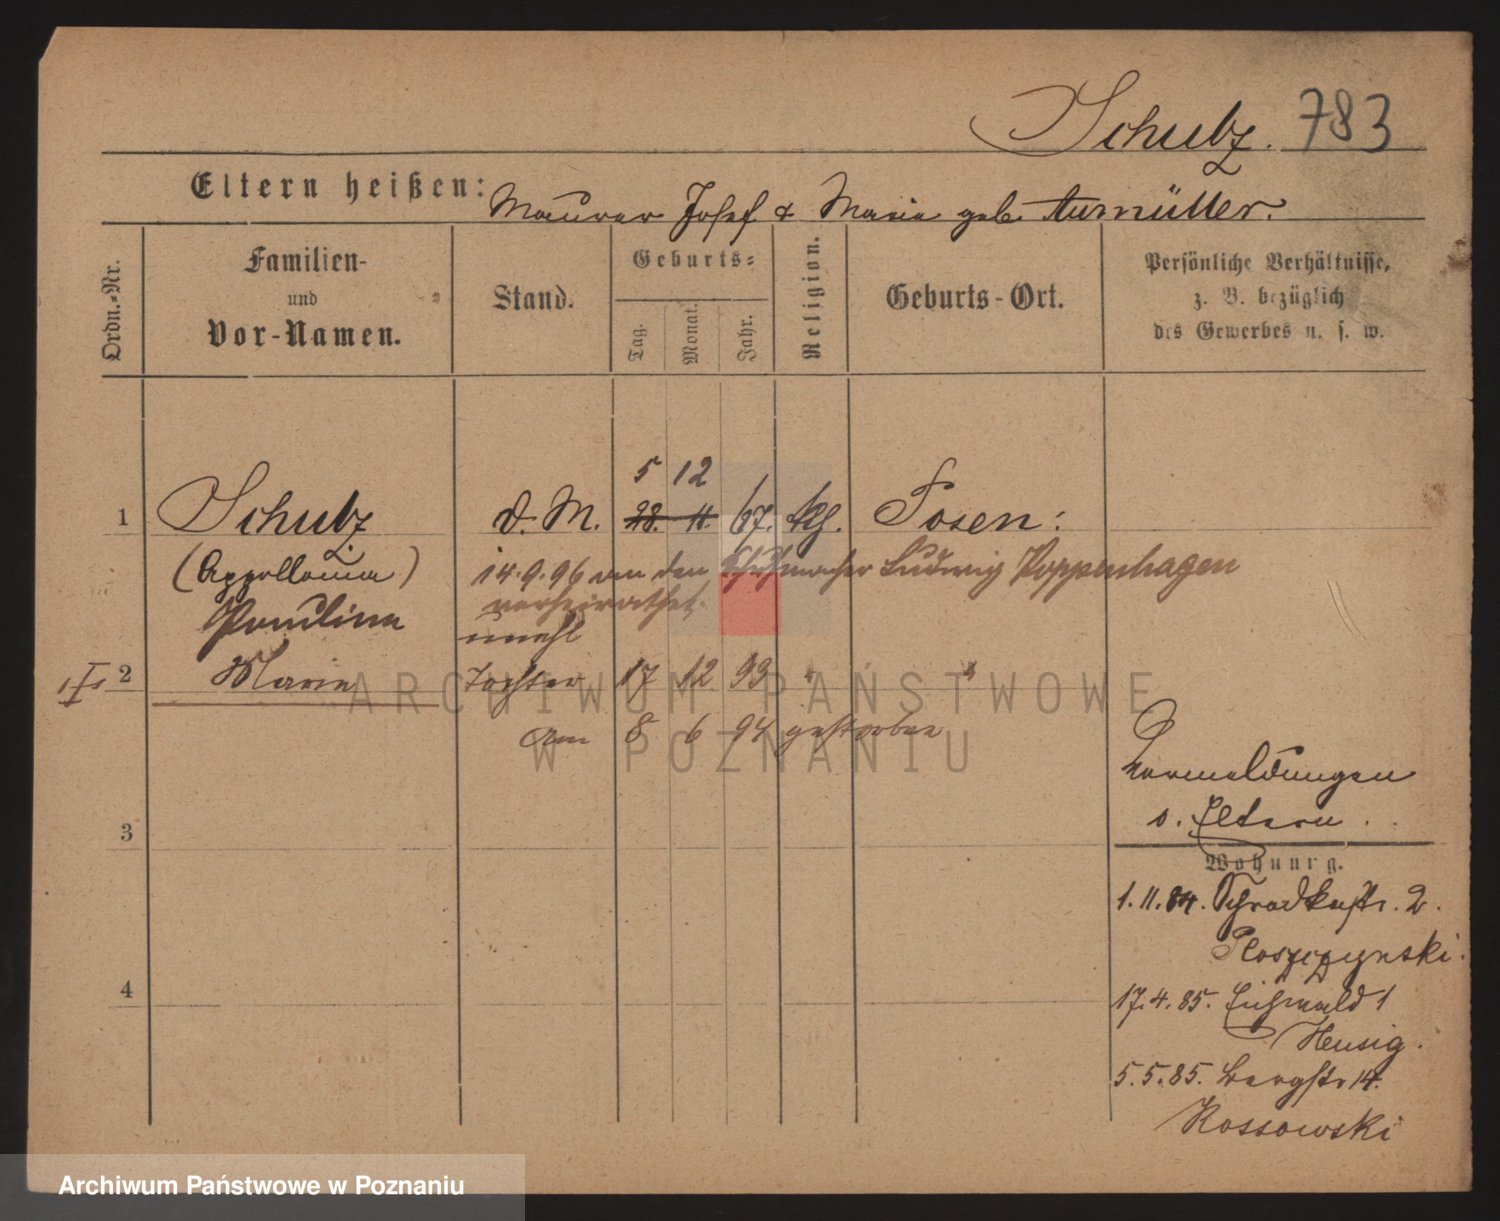 Schulz. 783
Eltern heißen: Maurer Josef & Marie geb. Aumüller.
Ordn.-Nr.
Familien-
und
Vor-Namen.
Stand.
Geburts-
Tag.
Monat.
Jahr.
Religion.
Geburts-Ort.
Persönliche Verhältnisse,
z. B. bezüglich
des Gewerbes u. s. w.
5 12
1 Schulz d. M. 28. 11. 67. kth. Posen:
(Appollonia) 14.9.96 an den Schuhmacher Ludwig Poppenhagen
verheirathet.
Paulina unehl
2 Marie Tochter 17 12 93 " "
am 8 6 94 gestorben
ARCHIWUM PAŃSTWOWE
W POZNANIU
Vormeldungen
s. Eltern.
3
Wohnung.
1.11.84. Schrodkastr. 2.
4
17.4.85. Eichwald 1
Heusig.
5.5.85. Bergstr 14.
Rossowski
Archiwum Państwowe w Poznaniu